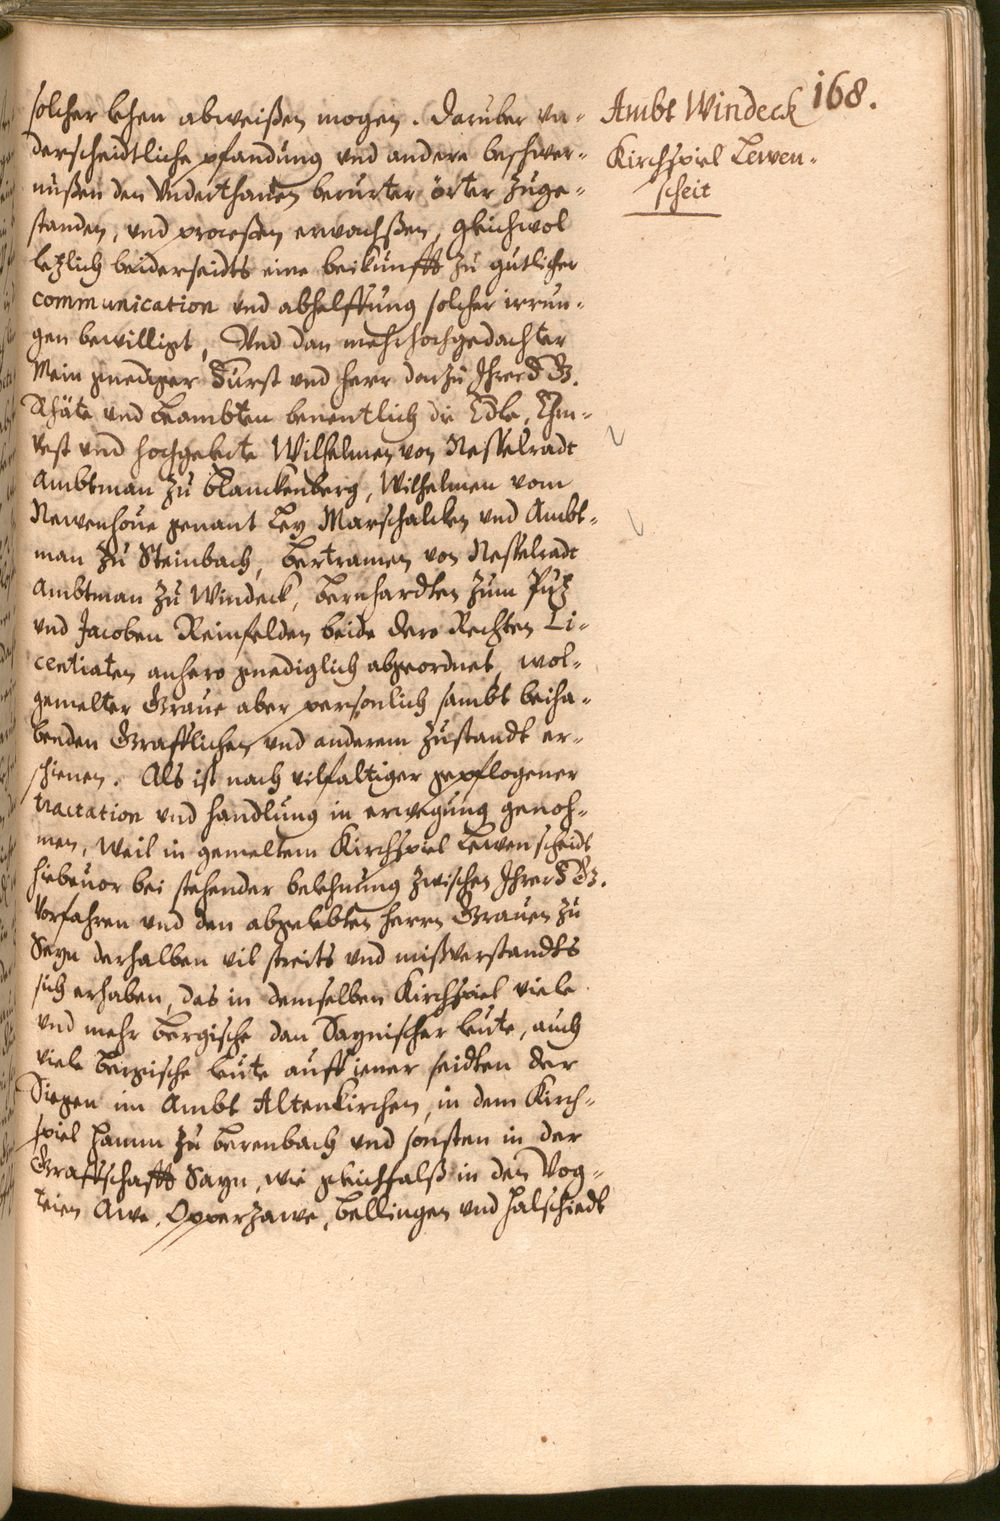 168.
Ambt Windeck
Kirchspiel Lewen-
scheit
solcher lehen abweißen mogen. Daruber un-
derscheidtliche pfandung und andere beschwer-
nußen den Underthanen berurter örter zuge-
standen, und processen erwachßen, gleichwol
letzlich beiderseidts eine beikunfft zu gutlicher
communication und abhelffung solcher irrun-
gen bewilligt, Und dan mehrhochgedachter
Mein gnediger Furst und Herr darzu Ihrer F G.
Rhäte und beambten benentlich die Edle, Ehrn-
vest und hochgelerte Wilhelmen von Nesselradt
Ambtman zu Blanckenberg, Wilhelmen vom
Newenhoue genant Ley Marschalcken und Ambt-
man zu Steinbach, Bertramen von Nesselradt
Ambtman zu Windeck, Bernhardten zum Putz
und Jacoben Reinfelden beide dero Rechten Li-
centiaten anhero gnediglich abgeordnet, wol-
gemelter Graue aber persönlich sambt beiha-
benden Grafflichen und anderem zustandt er-
schienen. Als ist nach vilfaltiger gepflogener
tractation und handlung in erwegung genoh-
men, Weil in gemeltem Kirchspiel Lewenscheidt
hiebeuor bei stehender belehnung zwischen Ihrer F G.
Vorfahren und den abgelebten herrn Grauen zu
Sayn derhalben vil streits und mißverstandts
sich erhaben, das in demselben Kirchspiel viele
und mehr Bergische dan Saynischer leute, auch
viele Bergische leute auff iener seidten der
Siegen im Ambt Altenkirchen, in dem Kirch-
spiel Hamm zu Berenbach und sonsten in der
Graffschafft Sayn, wie gleichfalß in den Vog-
teien Awe, Opperzawe, Bellingen und Halschiedt